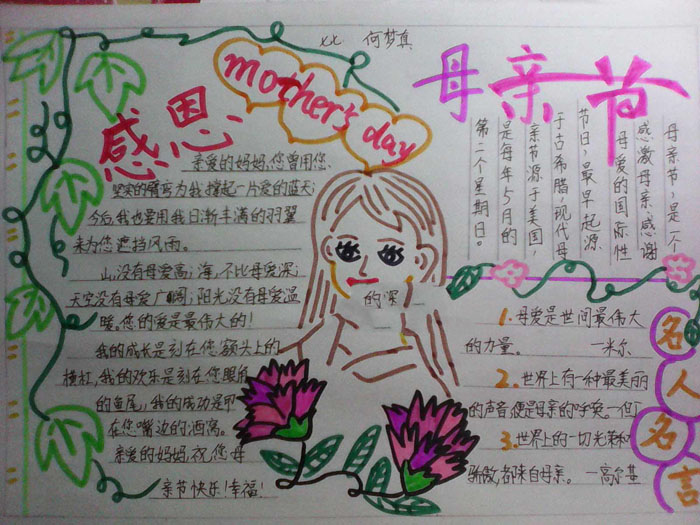 七七 何梦真
mother's day
感恩
亲爱的妈妈,您曾用您
坚实的臂弯为我撑起一片爱的蓝天;
今后,我也要用我日渐丰满的羽翼
来为您遮挡风雨。
山,没有母爱高;海,不比母爱深;
天空没有母爱广阔;阳光没有母爱温
暖。您的爱是最伟大的!
我的成长是刻在您额头上的
横杠,我的欢乐是刻在您眼角
的鱼尾,我的成功是甲
在您嘴边的酒窝。
亲爱的妈妈,祝您母
亲节快乐!幸福!
的深
母亲节
母亲节,是一个
感激母亲、感谢
母爱的国际性
节日,最早起源
于古希腊,现代母
亲节源于美国,
是每年5月的
第二个星期日。
名人名言
1.母爱是世间最伟大
的力量。 —米尔
2.世界上有一种最美丽
的声音,便是母亲的呼唤。—但丁
3.世界上的一切光荣和
骄傲,都来自母亲。—高尔基